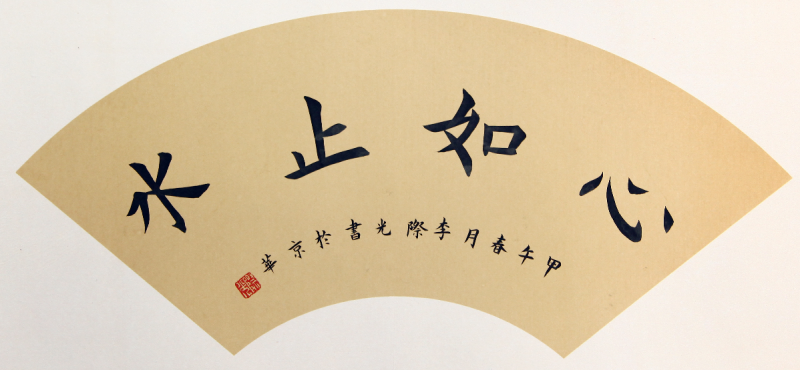 心如止水
甲午春月李際光書於京華